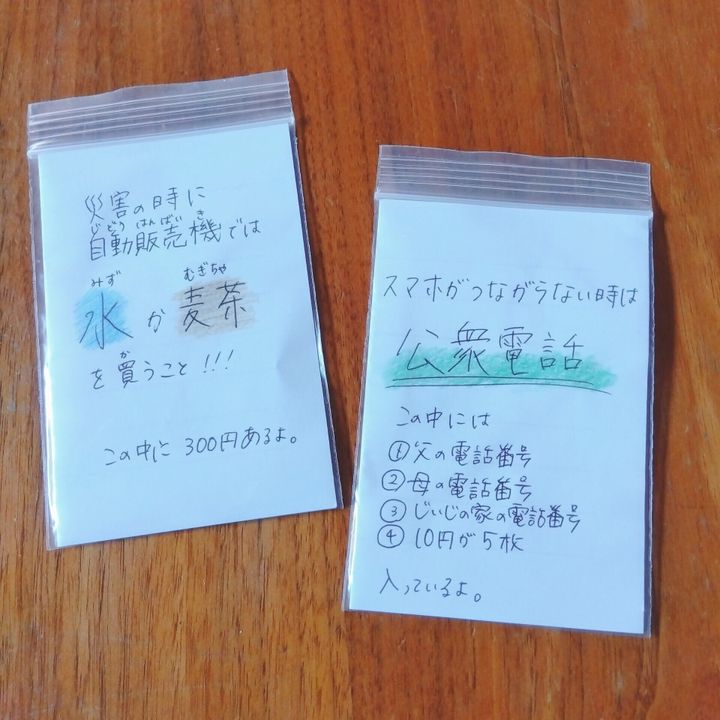 災害の時に
じどうはんばいき
自動販売機では
みず むぎちゃ
水か麦茶
か
を買うこと!!!
この中に300円あるよ。
スマホがつながらない時は
公衆電話
この中には
①父の電話番号
②母の電話番号
③じいじの家の電話番号
④10円が5枚
入っているよ。